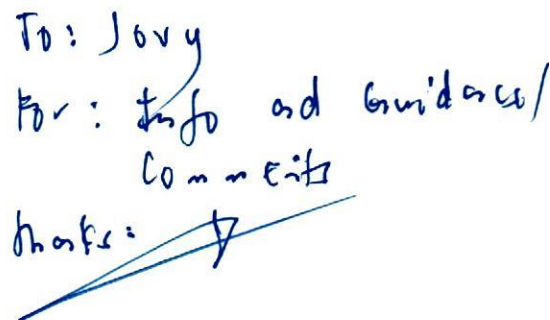 To: Jovy
For: Info and Guidance/
Comments
Thanks: